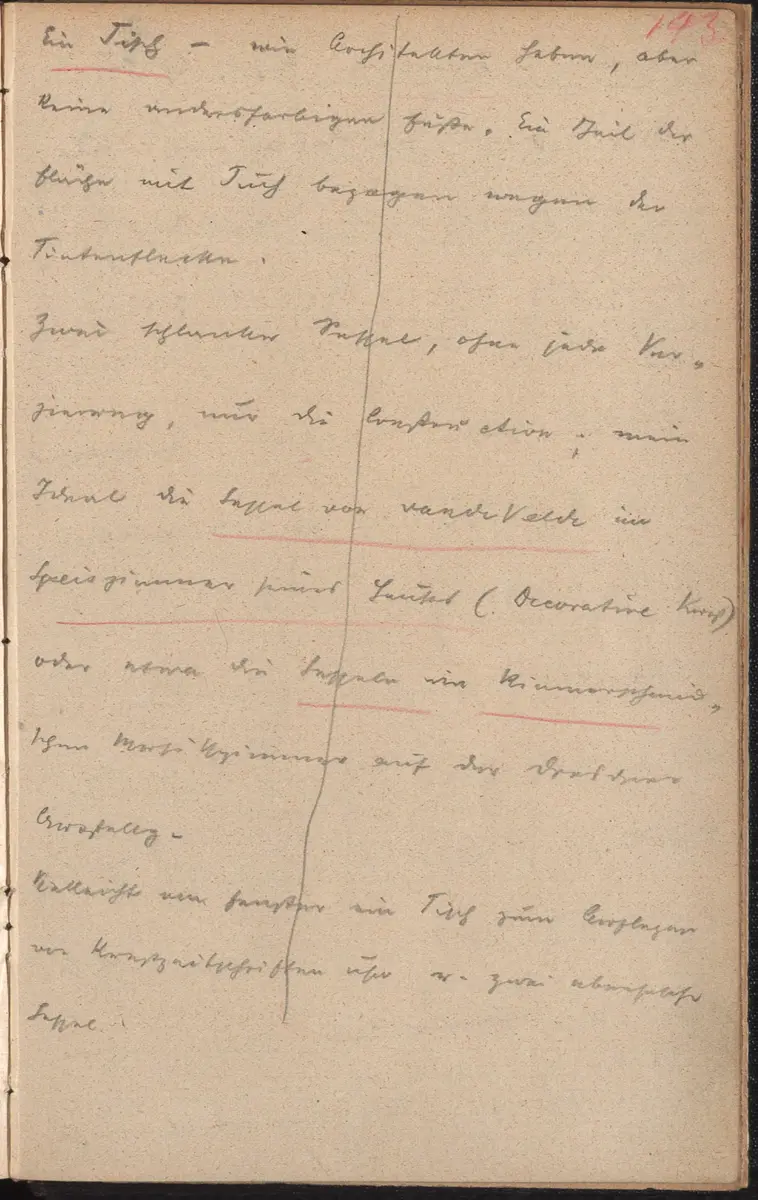 143
Ein Tisch – wie Architekten haben, aber
keine andersfarbigen Füße. Ein Teil der
Fläche mit Tuch bezogen wegen der
Tintenflecke.
Zwei schlanke Sessel, ohne jede Ver„
zierung, nur die Construction; mein
Ideal die Sessel von van de Velde im
Speiszimmer seines Hauses (Decorative Kunst)
oder etwa die Sesseln im Riemerschmid„
schen Musikzimmer auf der Dresdner
Ausstellg –
Vielleicht am Fenster ein Tisch zum Auflegen
von Kunstzeitschriften usw u. zwei
Sessel.